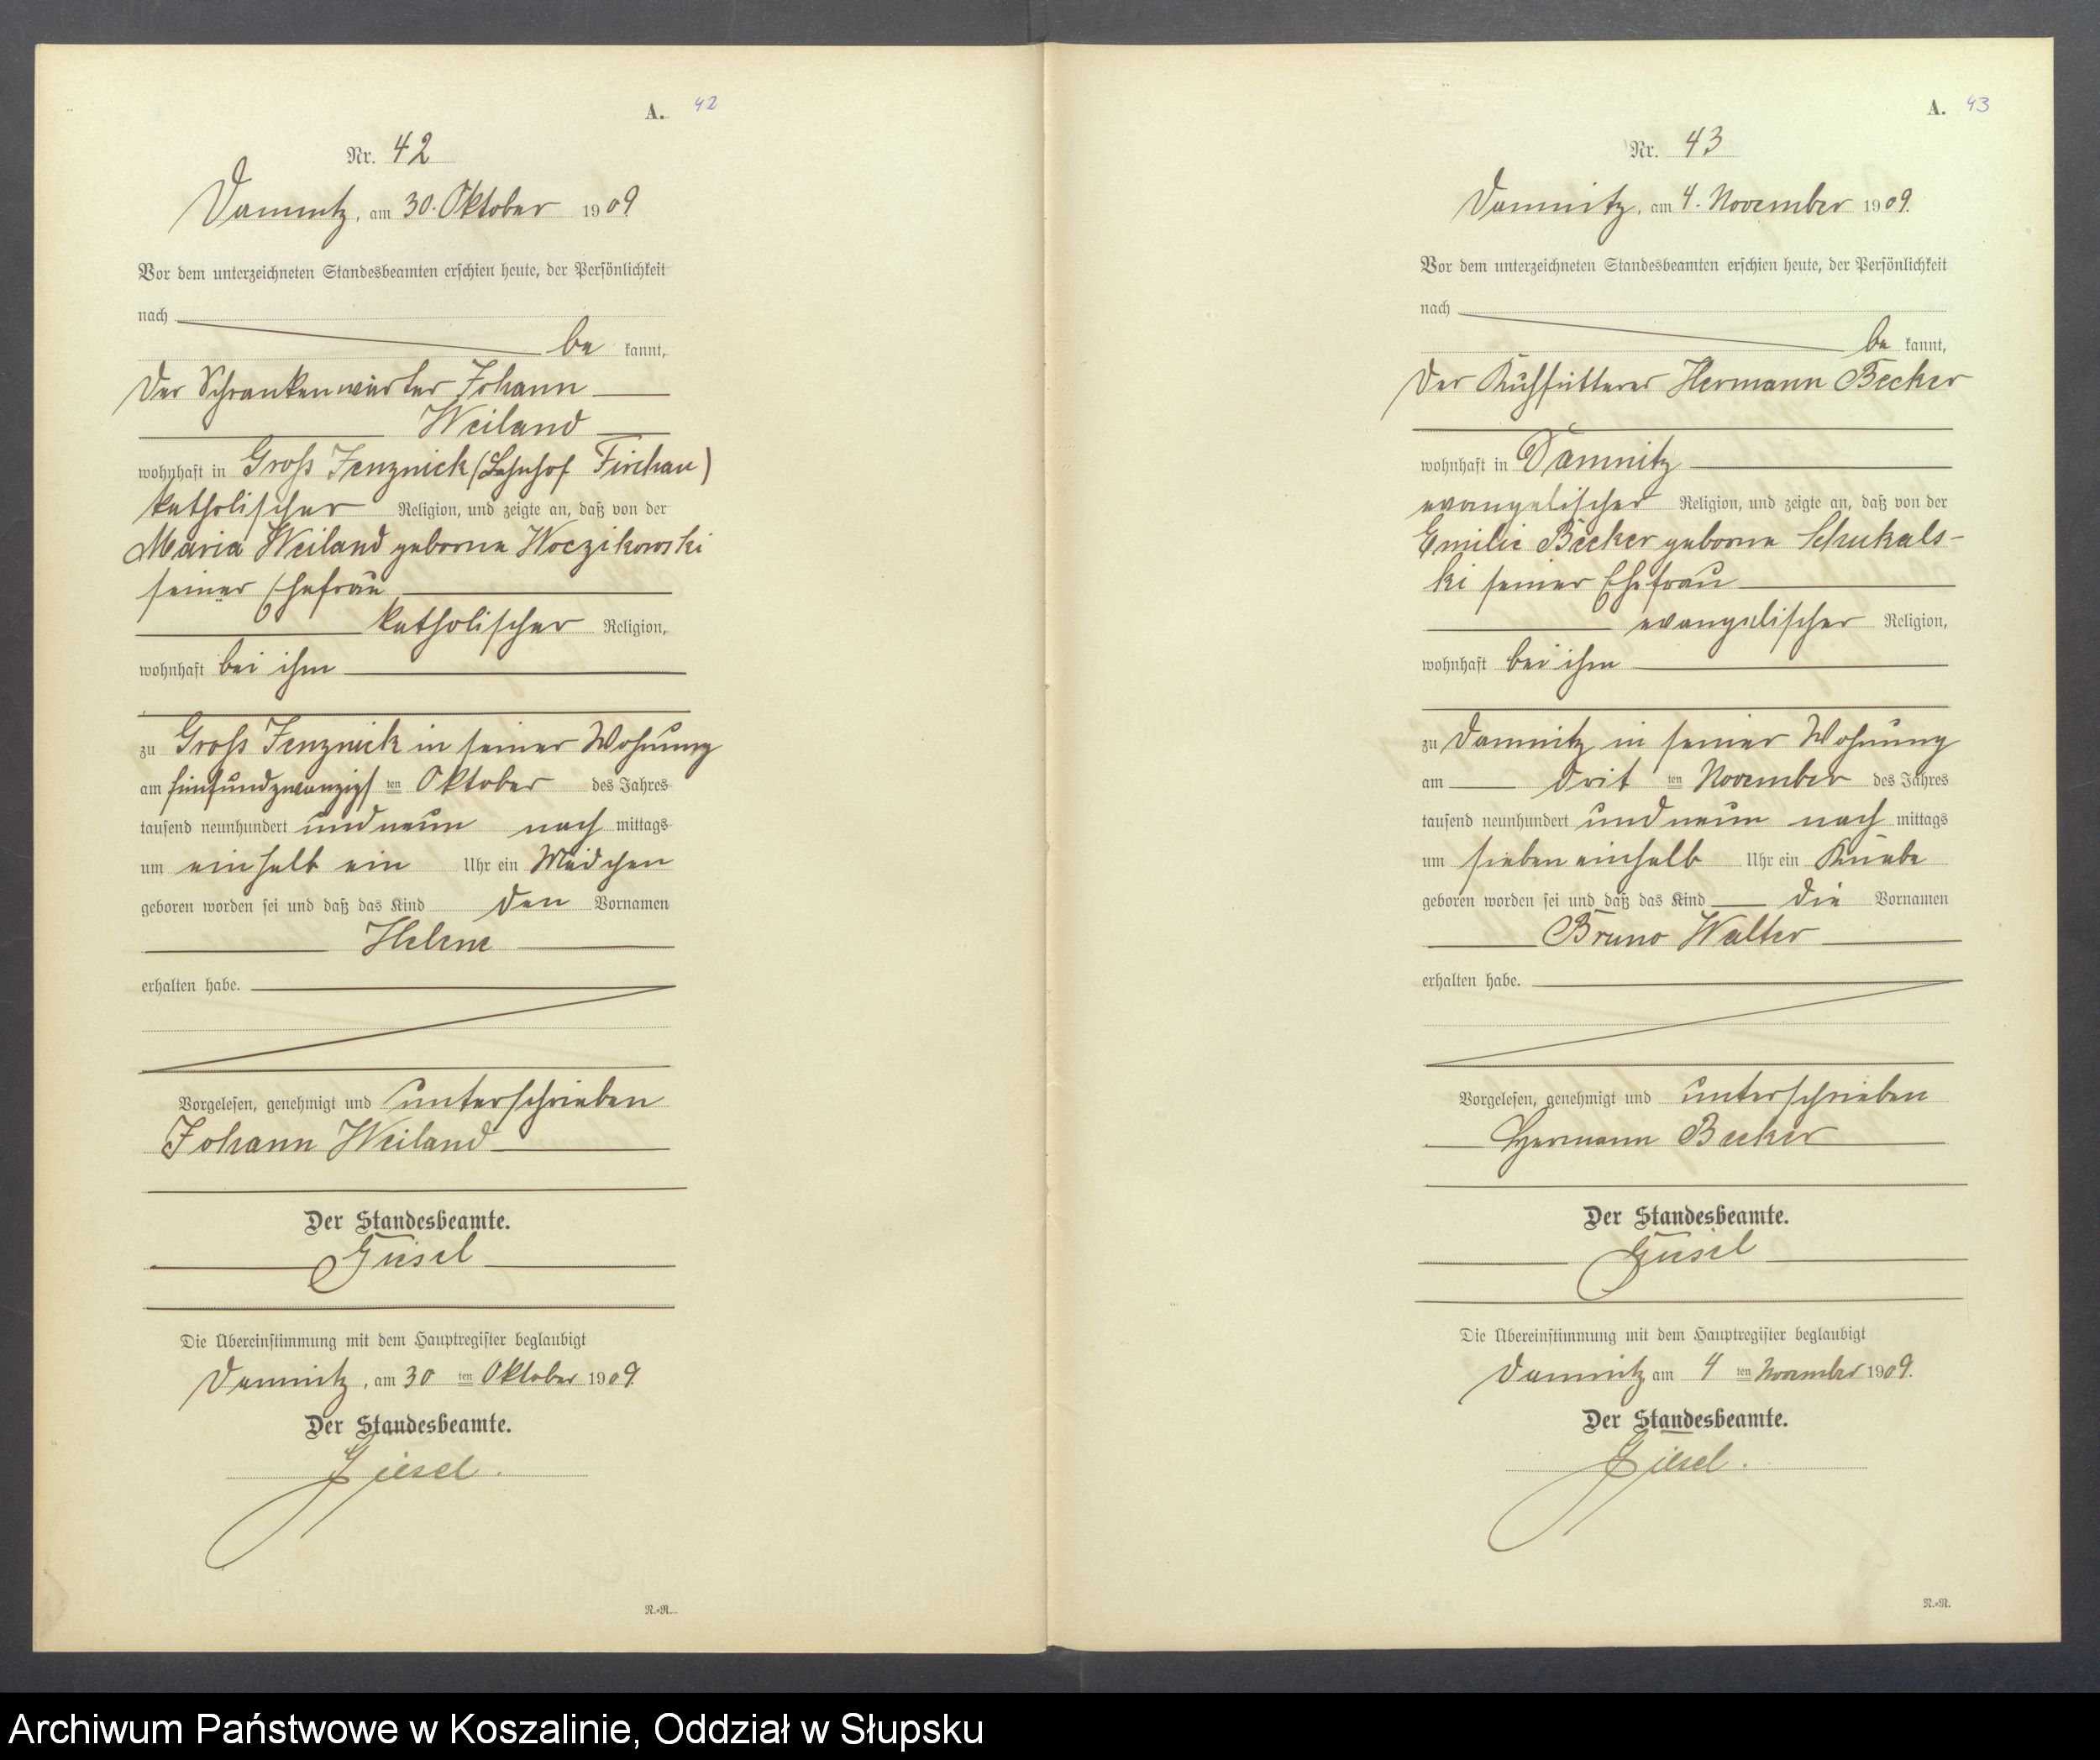 A. 42
Nr. 42
Damnitz, am 30. Oktober 1909
Vor dem unterzeichneten Standesbeamten erschien heute, der Persönlichkeit
nach
be kannt,
Der Schrankenwärter Johann
Weiland
wohnhaft in Groß Jenznick (Bahnhof Firchau)
katholischer Religion, und zeigte an, daß von der
Maria Weiland geborne Woczikowski
seiner Ehefrau
katholischer Religion,
wohnhaft bei ihm
zu Groß Jenznick in seiner Wohnung
am fünfundzwanzigsten Oktober des Jahres
tausend neunhundert und neun nach mittags
um einhalb ein Uhr ein Mädchen
geboren worden sei und daß das Kind den Vornamen
Helene
erhalten habe.
Vorgelesen, genehmigt und unterschrieben
Johann Weiland
Der Standesbeamte.
Giesel
Die Übereinstimmung mit dem Hauptregister beglaubigt
Damnitz, am 30 ten Oktober 1909.
Der Standesbeamte.
Giesel.
N.=R.
A. 43
Nr. 43
Damnitz, am 4. November 1909.
Vor dem unterzeichneten Standesbeamten erschien heute, der Persönlichkeit
nach
be kannt,
Der Kuhfütterer Hermann Becker
wohnhaft in Damnitz
evangelischer Religion, und zeigte an, daß von der
Emilie Becker geborne Schukals-
ki seiner Ehefrau
evangelischer Religion,
wohnhaft bei ihm
zu Damnitz in seiner Wohnung
am drit ten November des Jahres
tausend neunhundert und neun nach mittags
um sieben einhalb Uhr ein Knabe
geboren worden sei und daß das Kind die Vornamen
Bruno Walter
erhalten habe.
Vorgelesen, genehmigt und unterschrieben
Hermann Becker
Der Standesbeamte.
Giesel
Die Übereinstimmung mit dem Hauptregister beglaubigt
Damnitz am 4 ten November 1909.
Der Standesbeamte.
Giesel.
N.=R.
Archiwum Państwowe w Koszalinie, Oddział w Słupsku